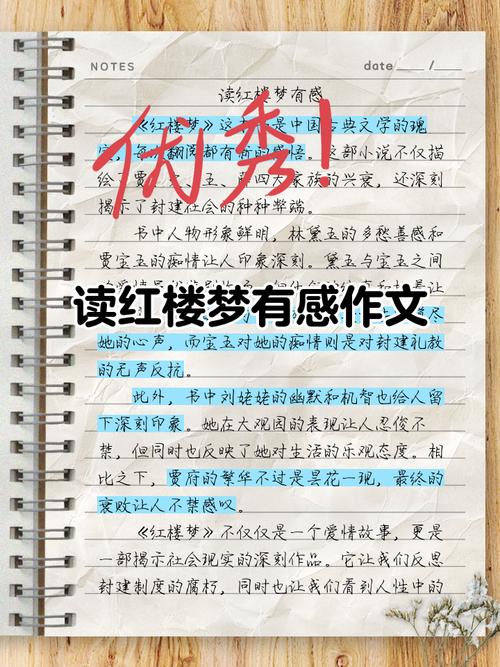 NOTES
date / 
读红楼梦有感
优秀!
《红楼梦》这是中国古典文学的瑰
翻阅都有新的感悟。这部小说不仅描
绘了贾、四大家族的兴衰,还深刻
揭示了封建社会的种种弊端。
书中人物形象鲜明,林黛玉的多愁善感和
贾宝玉的痴情让人印象深刻。黛玉与宝玉之间
读红楼梦有感作文
她的心声,而宝玉对她的痴情则是对封建礼教
的无声反抗。
此外,书中刘姥姥的幽默和机智也给人留
下深刻印象。她在大观园的表现让人忍俊不
禁,但同时也反映了她对生活的乐观态度。相
比之下,贾府的繁华不过是昙花一现,最终的
衰败让人不禁感叹。
《红楼梦》不仅仅是一个爱情故事,更是
一部揭示社会现实的深刻作品。它让我们反思
封建制度的腐朽,同时也让我们看到人性中的